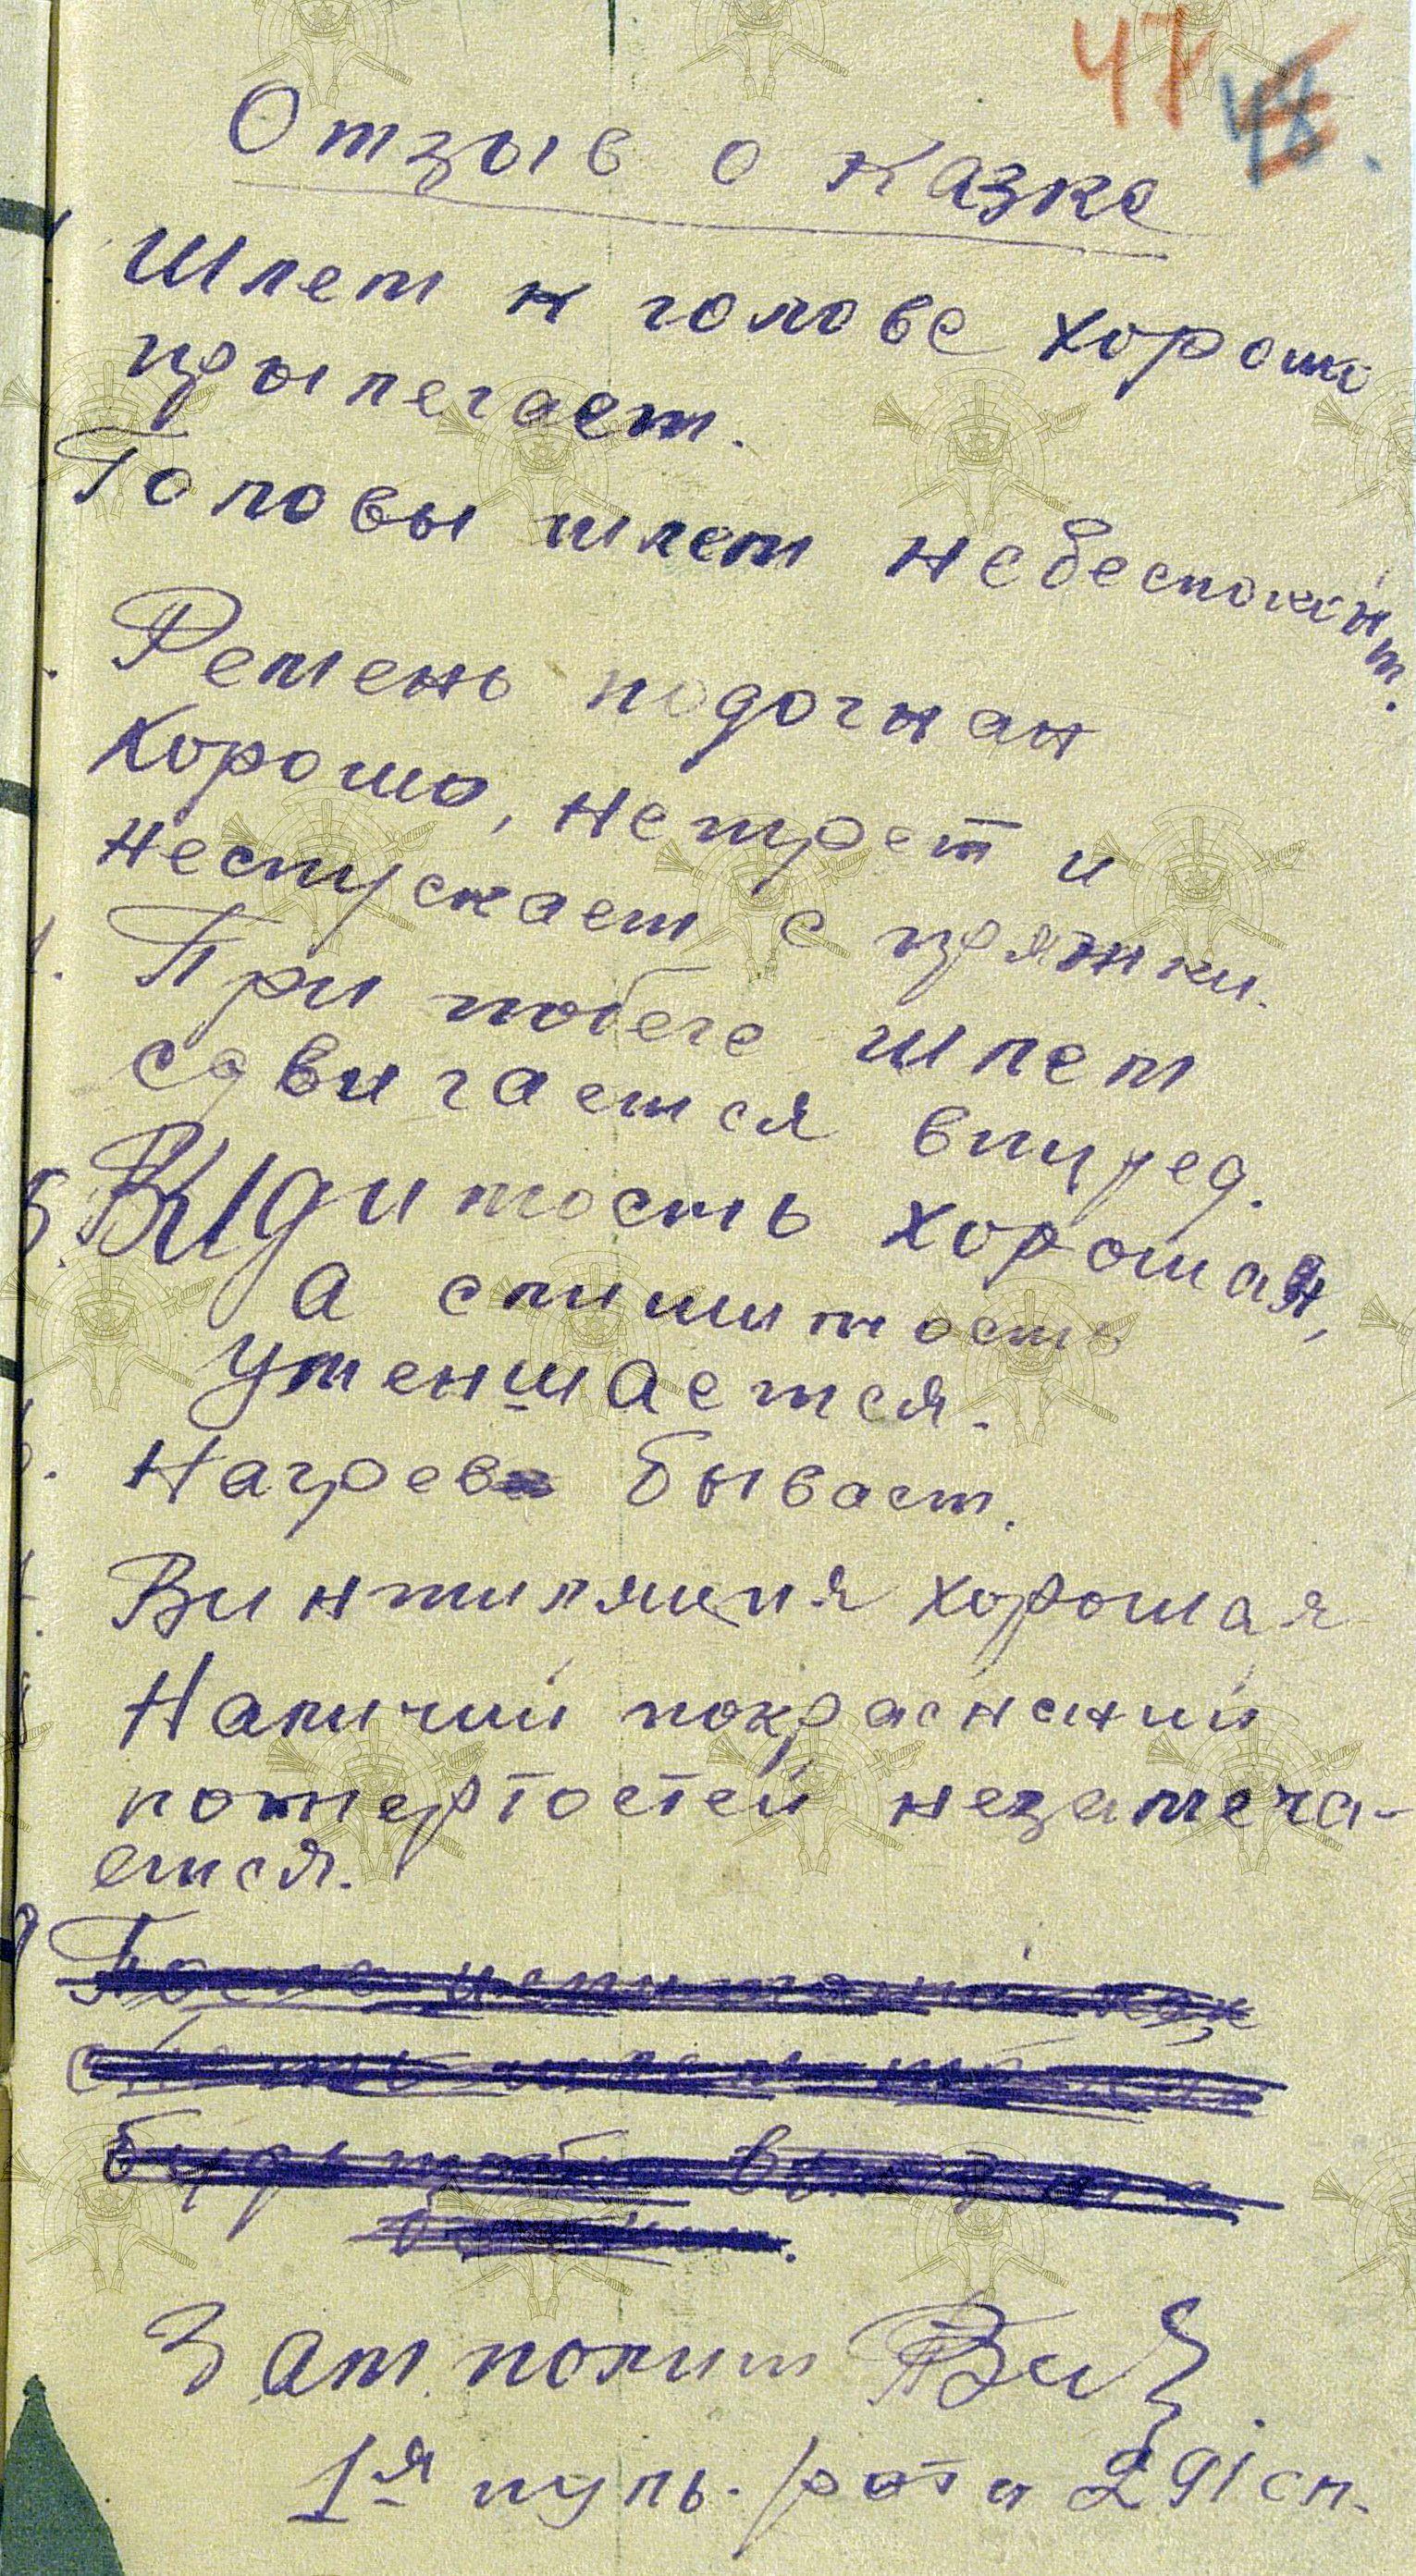 47 48.
Отзыв о казке
Шлем к голове хорошо
прылегает.
Головы шлем небеспокоит.
Ремень подогнан
хорошо, нетрет и
неспускает с пряжки.
При побеге шлем
сдвигается впиред.
5. Видимость хорошая,
а слишимость
уменшается.
Нагрев бывает.
Винтиляция хорошая
Наличий покраснений
потертостей незамеча-
ется.
Зам. полит
1я пуль. рота 291 сп.